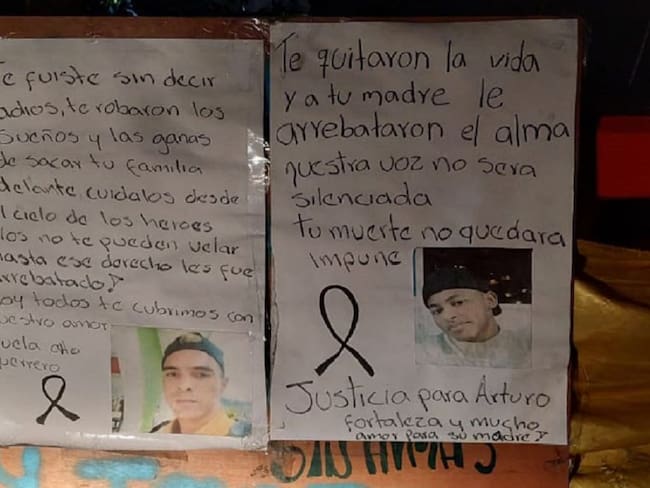 e fuiste sin decir
adios, te robaron los
sueños y las ganas
de sacar tu familia
delante cuidalos desde
l cielo de los heroes
los no te pueden velar
hasta ese derecho les fue
arrebatado!
oy todos te cubrimos con
uestro amor
uela alto
uerrero
Te quitaron la vida
y a tu madre le
arrebataron el alma
nuestra voz no sera
silenciada
tu muerte no quedara
impune
Justicia para Arturo
fortaleza y mucho
amor para su madre!